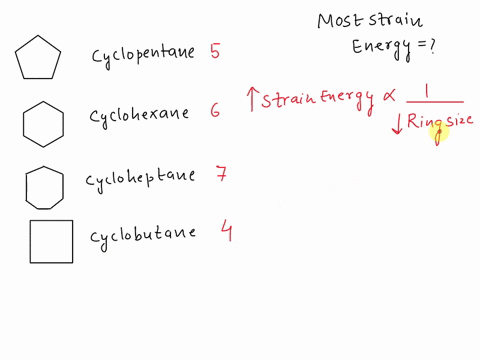 Most strain
Energy = ?
Cyclopentane 5
Cyclohexane 6
↑ Strain Energy ∝ 1
↓ Ring size
Cycloheptane 7
Cyclobutane 4